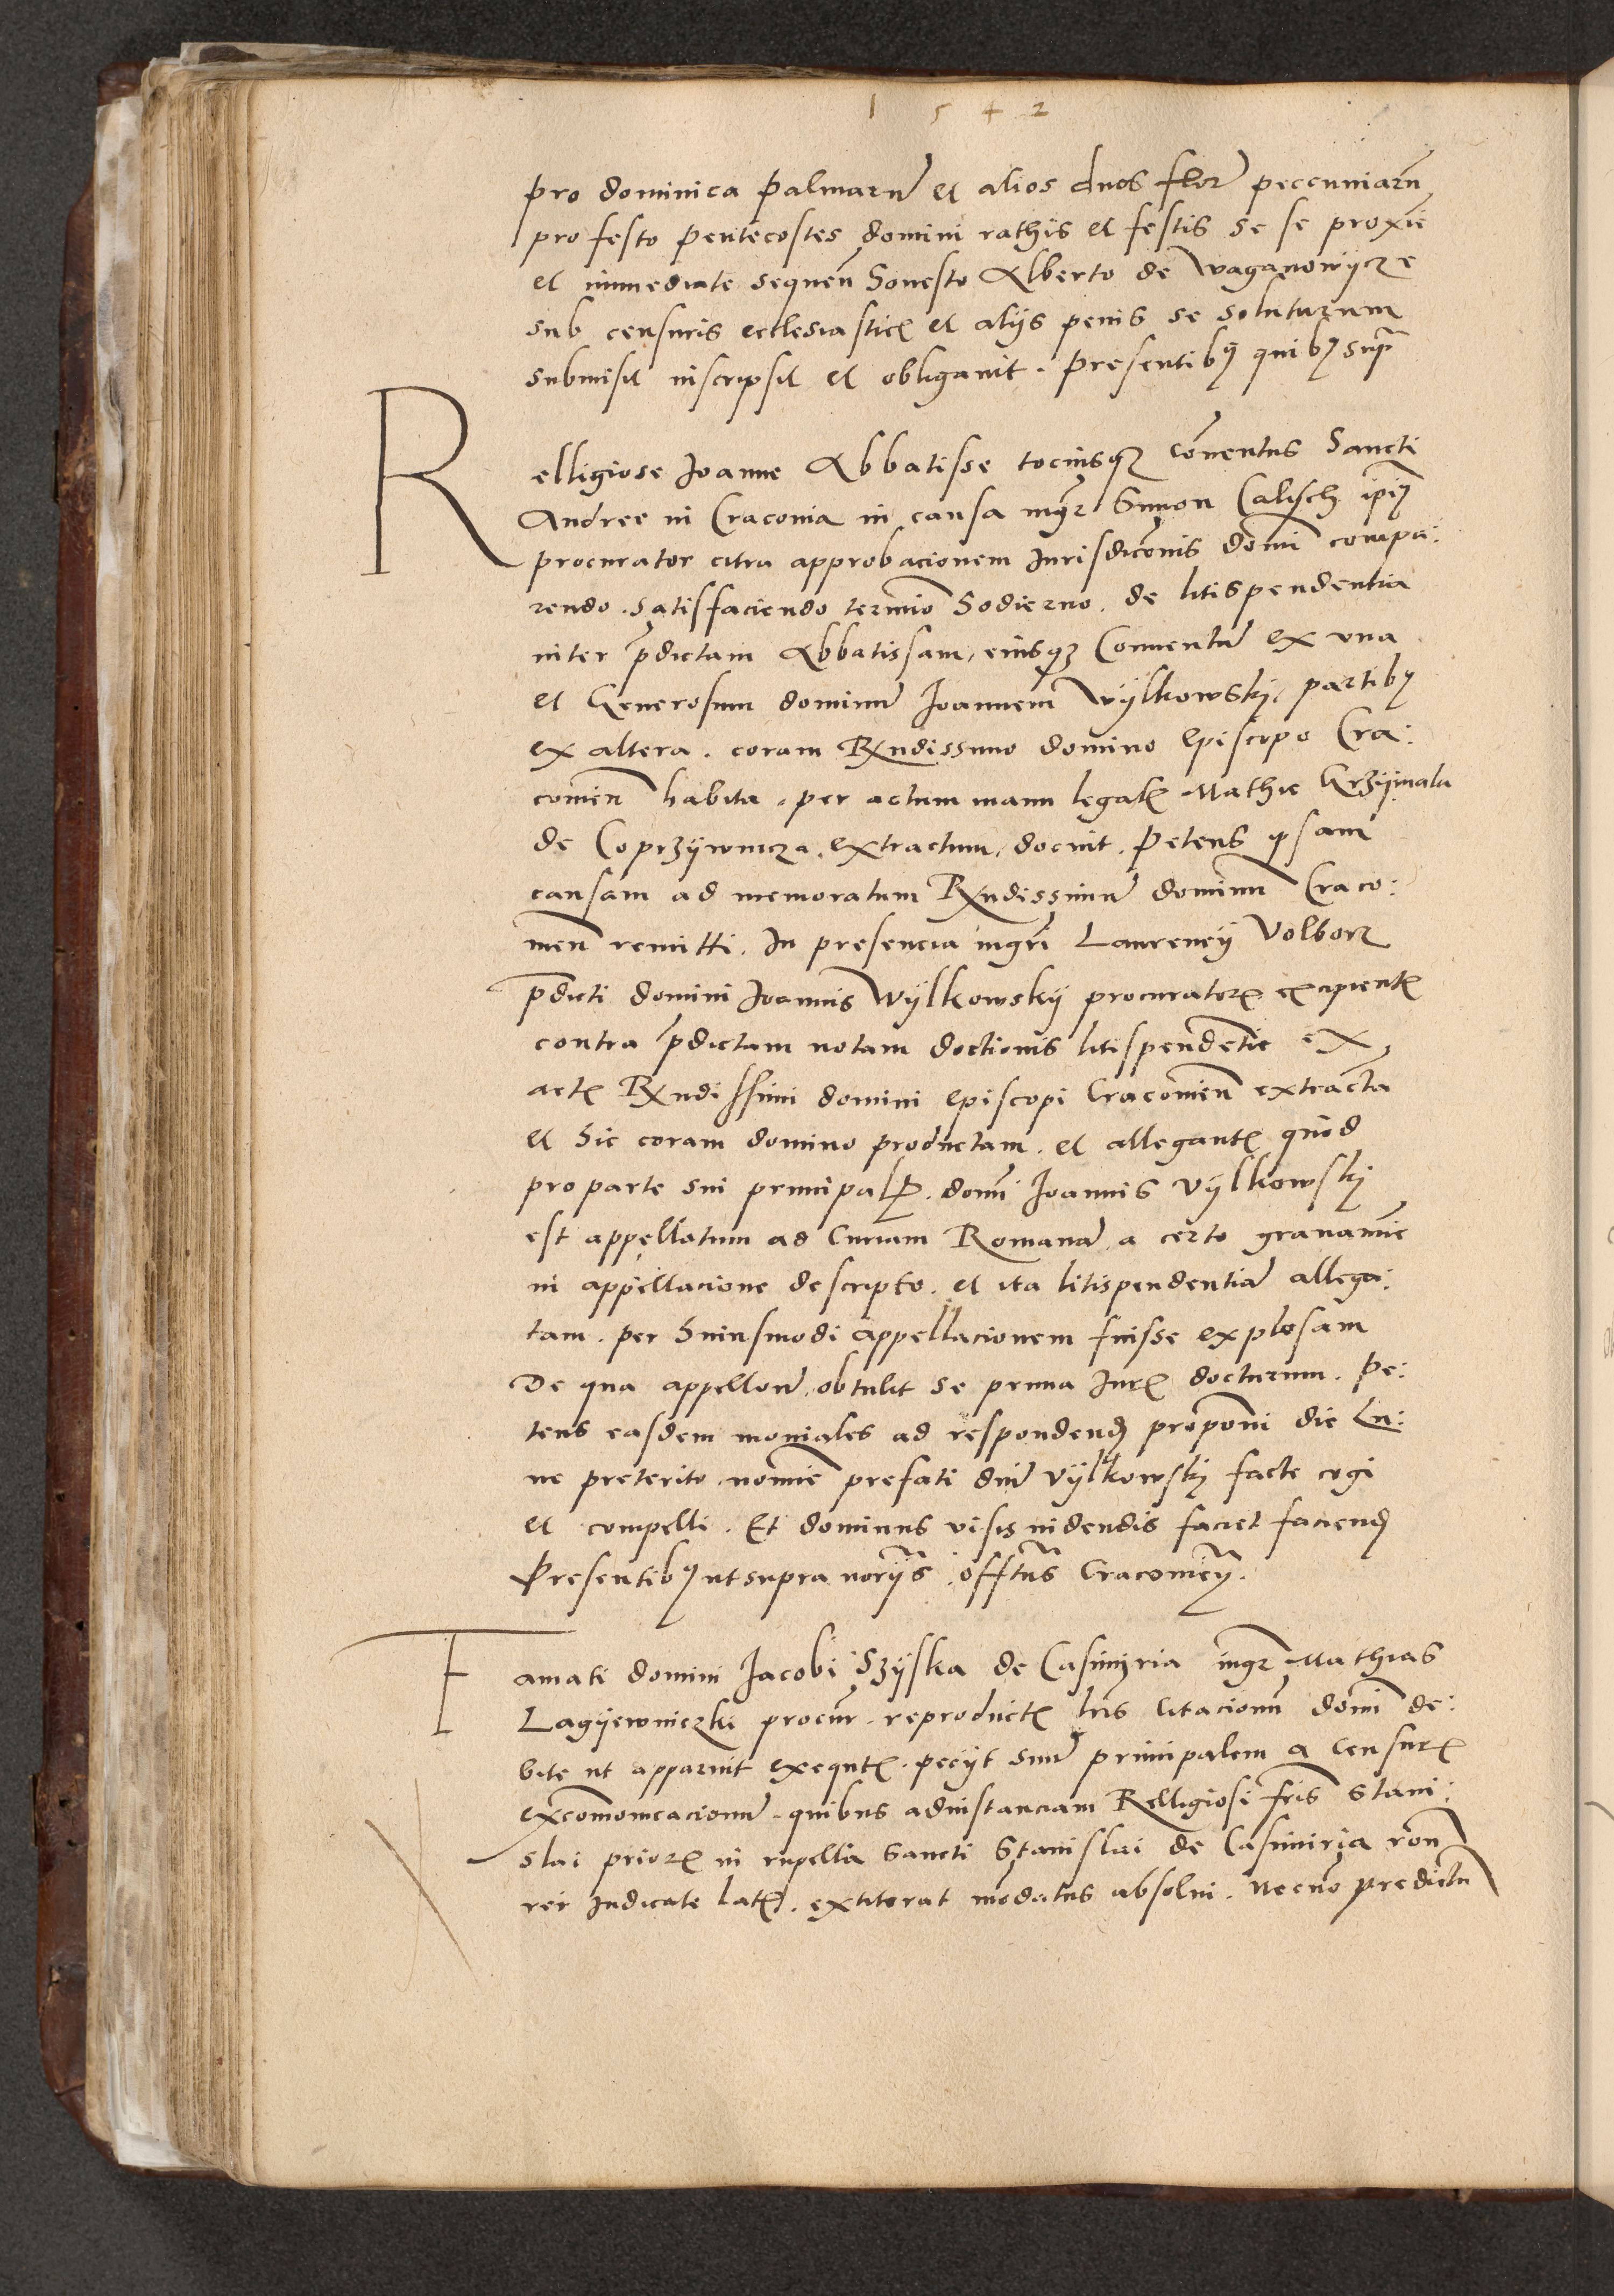 1 5 4 2
pro dominica Palmarũ et alios duos flor̃ peccuniarũ
pro festo Pentecostes domini rathijs et festis se se proxĩe
et immediate sequeñ Honesto Alberto de Waganowycze
sub censuris ecclesiasticꝭ et alijs penis se soluturum
submisit inscripsit et obligauit. Presentibꝫ quibꝫ supͣ
Relligiose Joanne Abbatisse tociusqꝫ Cõuentus Sancti
Andree in Cracouia in causa mgr̃ Simon Calisch ipiꝫ
procurator citra approbacionem Jurisdicõnis domĩ compa:
rendo. satisfaciendo termĩo hodierno. de litispendentia
inter p̃dictam Abbatissam, eiusqꝫ Conuentũ ex vna
et Generosum dominũ Joannem Wylkowskij, partibꝫ
ex altera. coram Rx̃ndissimo domino Episcopo Cra:
couieñ habita. per actum manu legalꝭ Mathie Grzymala
de Coprzywnicza. extractum, docuit. Petens ipsam
causam ad memoratum Rx̃ndissimũ dominũ Craco:
uieñ remitti. In presencia mgr̃i Laurencij Volborz
p̃dicti domini Joannis Wylkowskij procuratorꝭ excipientꝭ
contra p̃dictam notam doctionis litispendẽtie ex
actꝭ Rx̃ndissimi domini Episcopi Cracouieñ extracta
et hic coram domino productam. et allegantꝭ quod
pro parte sui principalꝭ. domĩ Joannis Vylkowskij
est appellatum ad Curiam Romanã a certo grauamĩe
in appellacione descripto. et ita litispendentiã allega:
tam. per huiusmodi appellacionem fuisse explosam
De qua appellonẽ. obtulit se prima Jurꝭ docturum. Pe:
tens easdem moniales ad respondendꝭ proponi die Lu:
ne preterito nomĩe prefati dnĩ Vylkowskij facte cogi
et compelli. Et dominus visis videndis faciet faciendꝭ
Presentibꝫ ut supra norijs. offtus Cracouieñ.
Famati domini Jacobi Szyska de Casimyria mgr̃ Mathias
Lagyewniczki procur̃. reproductꝭ lr̃is Citacionũ domĩ de:
bite ut apparuit exequtꝭ. pecijt suũ principalem a Censurꝭ
excõmonicacionũ. quibus ad instanciam Relligiosi fr̃is Stani:
slai priorꝭ in rupella Sancti Stanislai de Casimiria rõn
rei Judicate latꝭ. extiterat inodatus absolui. Necnõ predictũ